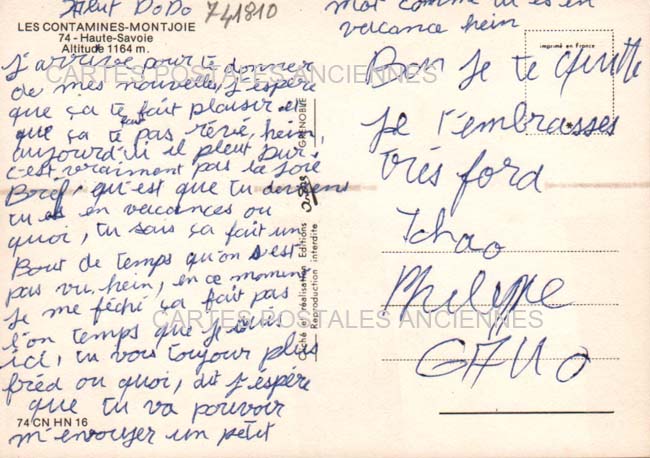 Salut DoDo
741810
LES CONTAMINES-MONTJOIE
74 - Haute-Savoie
Altitude 1164 m.
J'arrive pour te donner
de mes nouvelles, j'espère
que ça te fait plaisir et
que ça te fait pas rêvé, hein,
aujourd'ui il pleut dur,
c'est vraiment pas la joie
Bref, qu'est que tu deviens
tu es en vacances ou
quoi, tu sais ça fait un
Bout de temps qu'on s'est
pas vu, hein, en ce moment
je me féché ça fait pas
l'on temps que je suis
ici, tu vois toujour plus
fred ou quoi, dit j'espère
que tu va pouvoir
74 CN HN 16
m'envoyer un petit
mot comme tu es en
vacance hein
imprimé en France
Bon je te quitte
je t'embrasses
très ford
Tchao
Philippe
CARTES POSTALES ANCIENNES
CARTES POSTALES ANCIENNES
GRENOBLE
Cliché et réalisation Editions
Reproduction interdite